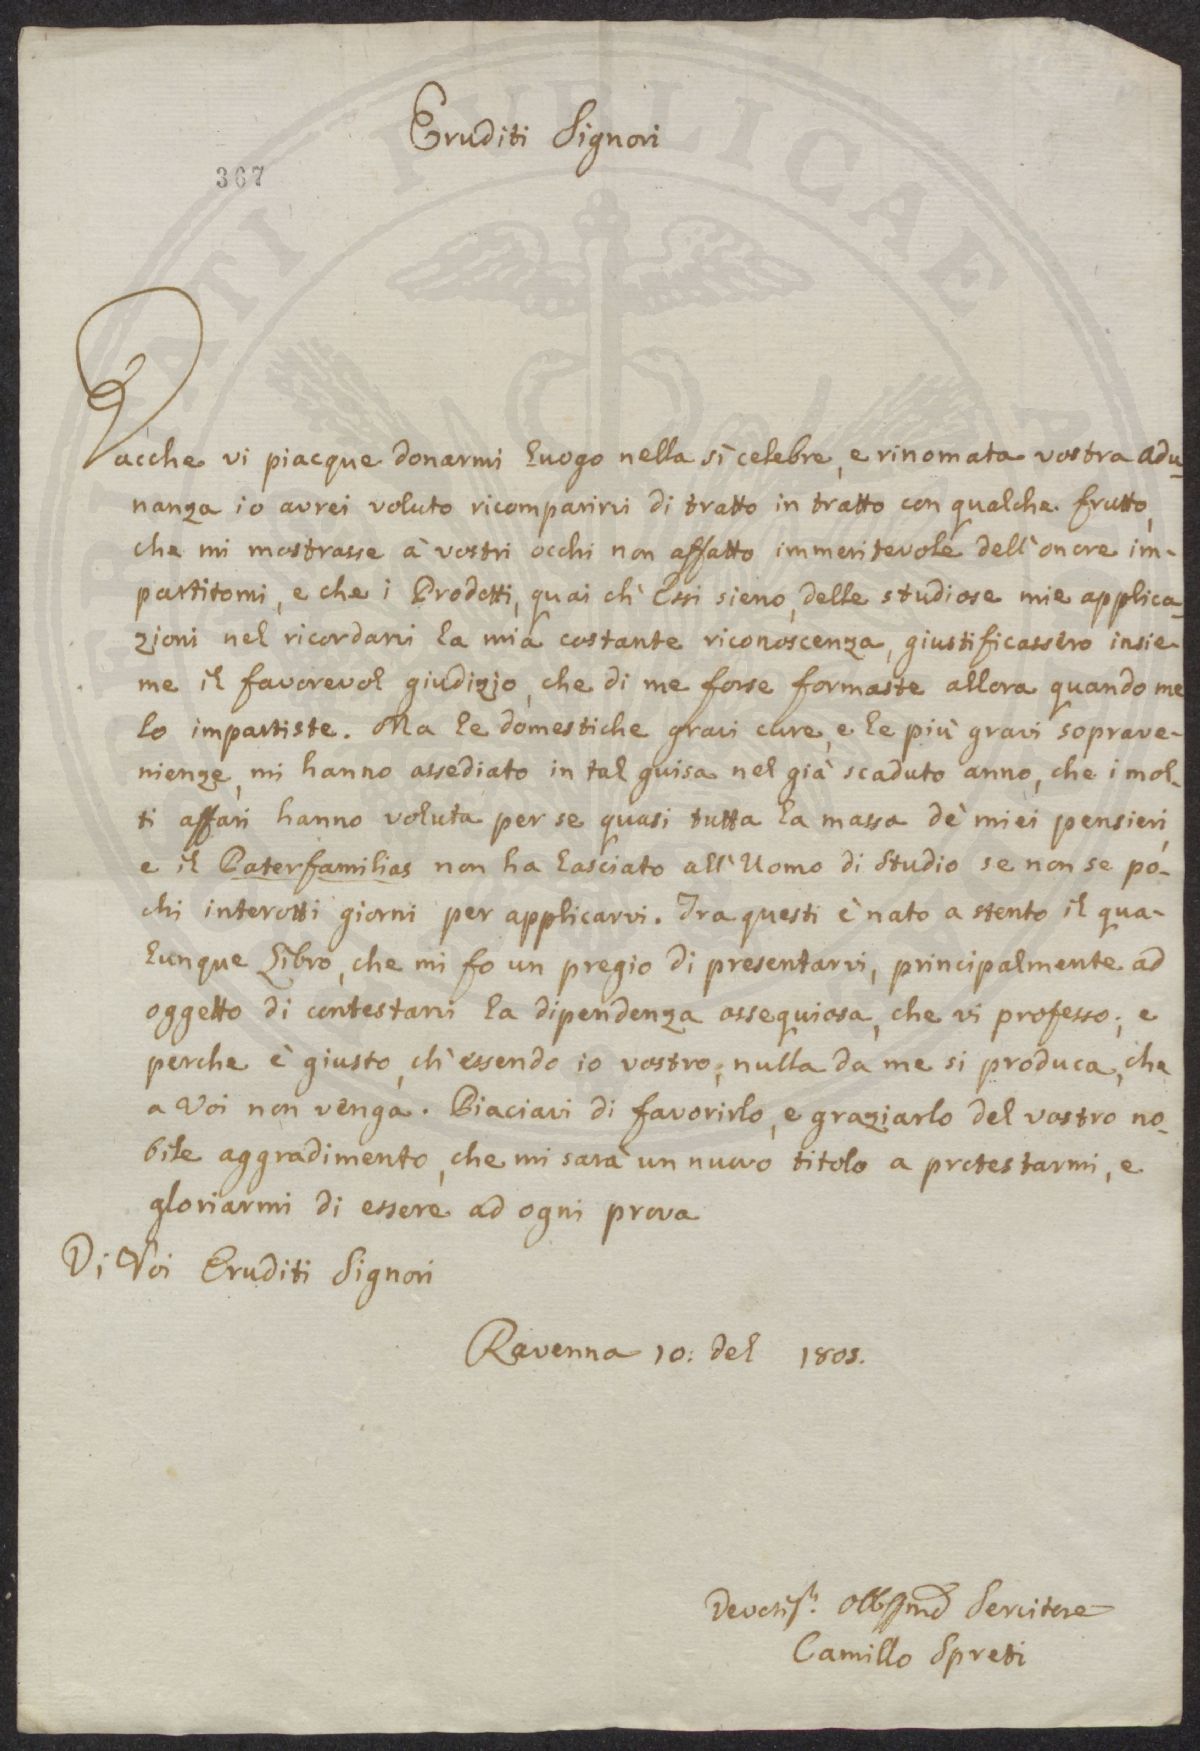 Eruditi Signori
367
Dacche vi piacque donarmi luogo nella sì celebre, e rinomata vostra Adu-
nanza io avrei voluto ricomparirvi di tratto in tratto con qualche frutto,
che mi mostrasse à vostri occhi non affatto immeritevole dell'onore im-
partitomi, e che i Prodotti, quai ch'Essi sieno, delle studiose mie applica-
zioni nel ricordarvi la mia costante riconoscenza, giustificassero insie-
me il favorevol giudizio, che di me forse formaste allora quando me
lo impartiste. Ma le domestiche gravi cure, e le più gravi soprave-
nienze, mi hanno assediato in tal guisa nel già scaduto anno, che i mol-
ti affari hanno voluta per se quasi tutta la massa de' miei pensieri,
e il Paterfamilias non ha lasciato all'Uomo di Studio se non se po-
chi interotti giorni per applicarvi. Tra questi è nato a stento il qua-
lunque Libro, che mi fo un pregio di presentarvi, principalmente ad
oggetto di contestarvi la dipendenza ossequiosa, che vi professo; e
perche è giusto, ch'essendo io vostro, nulla da me si produca, che
a Voi non venga. Piaciavi di favorirlo, e graziarlo del vostro no-
bile aggradimento, che mi sarà un nuovo titolo a protestarmi, e
gloriarmi di essere ad ogni prova
Di Voi Eruditi Signori
Ravenna 10: del 1805.
Devotis.º Obbmo Servitore
Camillo Spreti
PRIVATI PUBLICAE